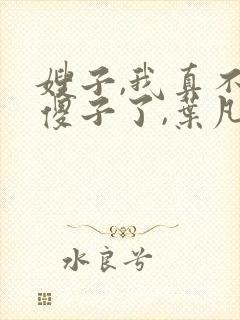 嫂子,我真不
傻子了,葉凡
水良兮